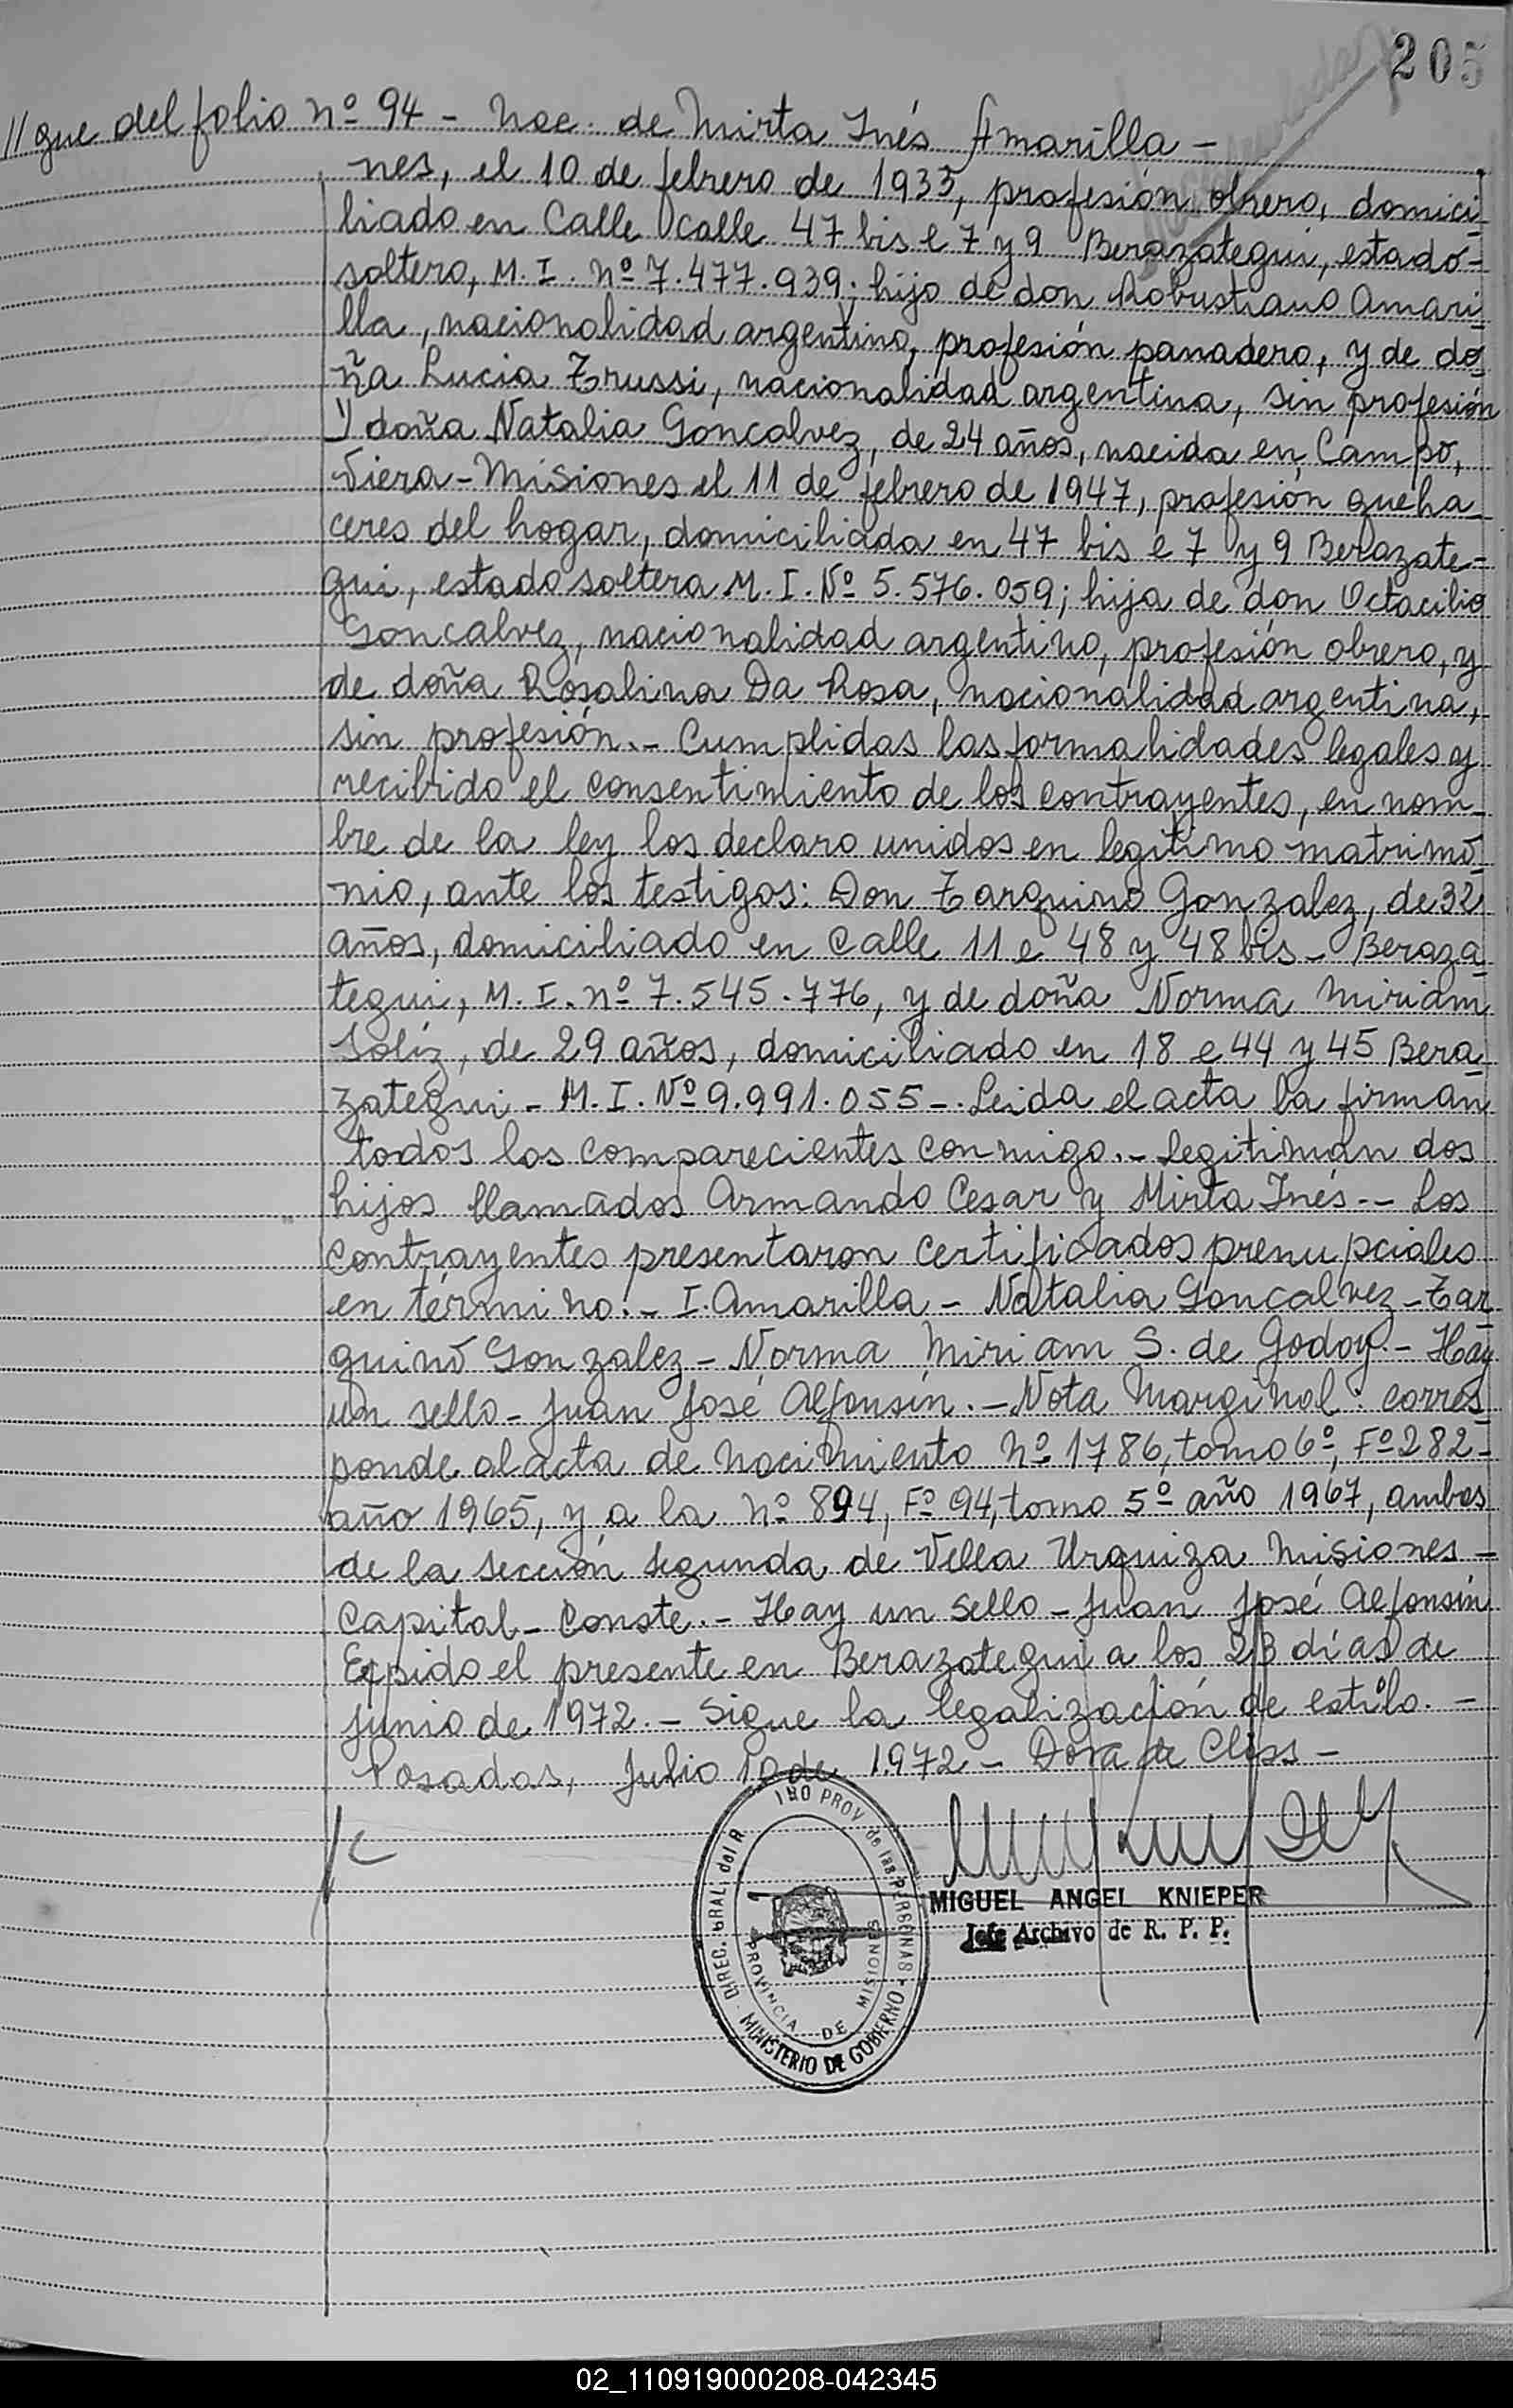 205
//gue del folio nº 94 - Nac. de Mirta Inés Amarilla -
nes, el 10 de febrero de 1935, profesión obrero, domici-
liado en Calle calle 47 bis e 7 y 9 Berazategui, estado-
soltero, M. I. nº 7.477.939; hijo de don Robustiano Amari-
lla, nacionalidad argentino, profesión panadero, y de do-
ña Lucia Trussi, nacionalidad argentina, sin profesión
Y doña Natalia Goncalvez, de 24 años, nacida en Campo,
Viera - Misiones el 11 de febrero de 1947, profesión queha-
ceres del hogar, domiciliada en 47 bis e 7 y 9 Berazate-
gui, estado soltera M. I. Nº 5.576.059; hija de don Octacilio
Goncalvez, nacionalidad argentino, profesión obrero, y
de doña Rosalina Da Rosa, nacionalidad argentina,
sin profesión.- Cumplidas las formalidades legales y
recibido el consentimiento de los contrayentes, en nom-
bre de la ley los declaro unidos en legitimo matrimo-
nio, ante los testigos: Don Tarquino Gonzalez, de 32
años, domiciliado en calle 11 e 48 y 48 bis - Beraza-
tegui, M. I. nº 7.545.776, y de doña Norma Miriam
Soliz, de 29 años, domiciliado en 18 e 44 y 45 Bera-
zategui - M. I. Nº 9.991.055 -. Leida el acta la firman
todos los comparecientes conmigo.- legitiman dos
hijos llamados Armando Cesar y Mirta Inés.-- Los
contrayentes presentaron certificados prenupciales
en término.- I. Amarilla - Natalia Goncalvez - Tar-
quino Gonzalez - Norma Miriam S. de Godoy.- Hay
un sello - Juan José Alfonsín.- Nota Marginal: corres-
ponde al acta de nacimiento nº 1786, tomo 6º, Fº 282-
año 1965, y a la nº 894, Fº 94, tomo 5º año 1967, ambas
de la sección segunda de Villa Urquiza Misiones -
Capital - Conste.- Hay un sello - Juan José Alfonsín
Expido el presente en Berazategui a los 23 días de
junio de 1972.- Sigue la legalización de estilo.-
Posadas, Julio 10 de 1972 - Dora de Cliss -
DIREC. GRAL. del R PROV de las PERSONAS
MINISTERIO DE GOBIERNO
PROVINCIA DE MISIONES
MIGUEL ANGEL KNIEPER
Jefe Archivo de R. P. P.
02_110919000208-042345